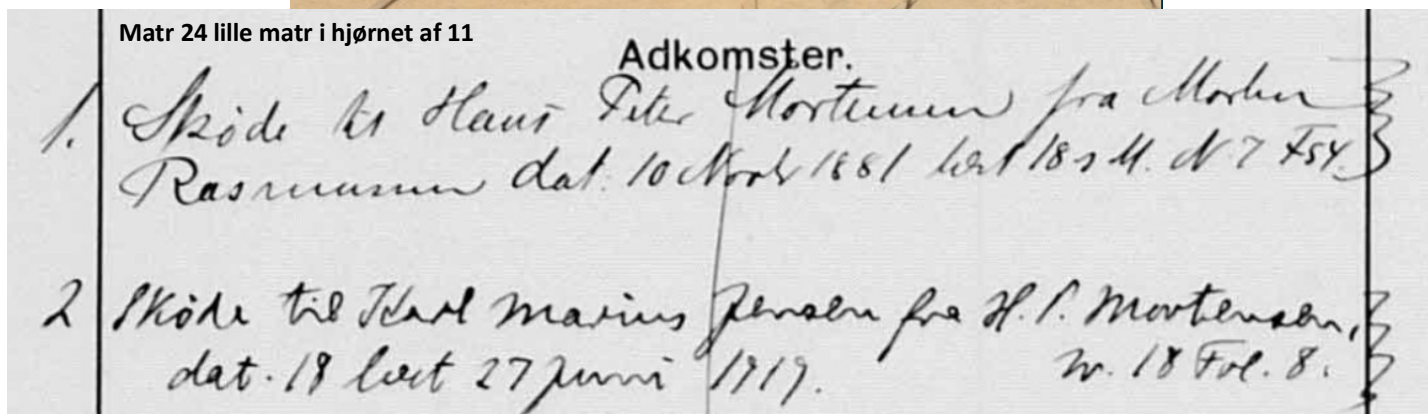 Matr 24 lille matr i hjørnet af 11
Adkomster.
1. Skøde til Hans Peter Mortensen fra Morten
Rasmussen dat. 10 Novb 1881 læst 18 s M. N. 7 F 54.
2 Skøde til Karl Marius Jensen fra H. P. Mortensen,
dat. 18 læst 27 Juni 1919. N. 18 Fol. 8.